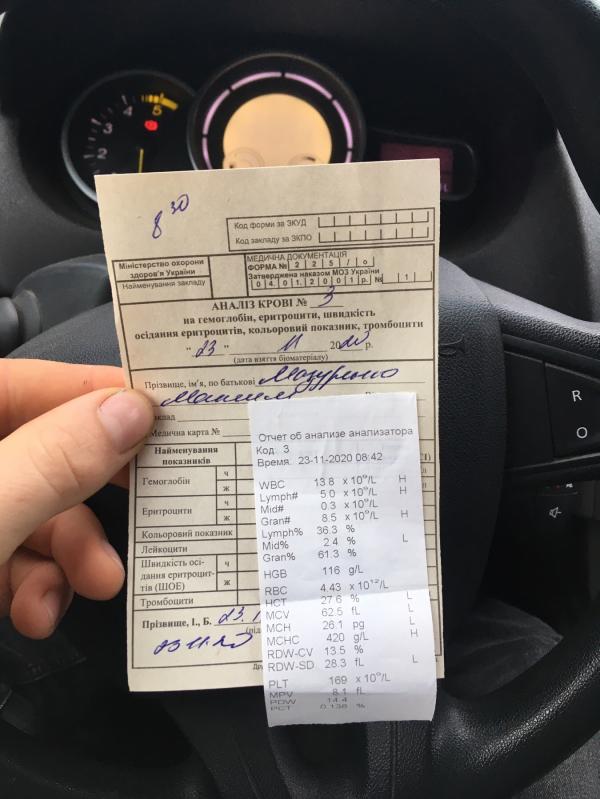 8 30
Код форми за ЗКУД
Код закладу за ЗКПО
Міністерство охорони
здоров'я України
Найменування закладу
МЕДИЧНА ДОКУМЕНТАЦІЯ
ФОРМА № 2 2 5 / о
Затверджена наказом МОЗ України
0 4 . 0 1 . 2 0 0 1 р. № 1
АНАЛІЗ КРОВІ № 3
на гемоглобін, еритроцити, швидкість
осідання еритроцитів, кольоровий показник, тромбоцити
" 23 " 11 2020 р.
(дата взяття біоматеріалу)
Прізвище, ім'я, по батькові
Медична карта №
Найменування
показників
Гемоглобін ч
ж
Еритроцити ч
ж
Кольоровий показник
Лейкоцити
Швидкість осі-
дання еритроци-
тів (ШОЕ) ч
ж
Тромбоцити
Прізвище, І., Б. 23.1
23.11.20
Отчет об анализе анализатора
Код: 3
Время: 23-11-2020 08:42
WBC 13.8 x 10^9/L H
Lymph# 5.0 x 10^9/L H
Mid# 0.3 x 10^9/L
Gran# 8.5 x 10^9/L H
Lymph% 36.3 %
Mid% 2.4 % L
Gran% 61.3 %
HGB 116 g/L
RBC 4.43 x 10^12/L
HCT 27.6 % L
MCV 62.5 fL L
MCH 26.1 pg L
MCHC 420 g/L H
RDW-CV 13.5 %
RDW-SD 28.3 fL L
PLT 169 x 10^9/L
MPV 8.1 fL
PDW 14.4
PCT 0.136 %
2
3
4
5
R
O